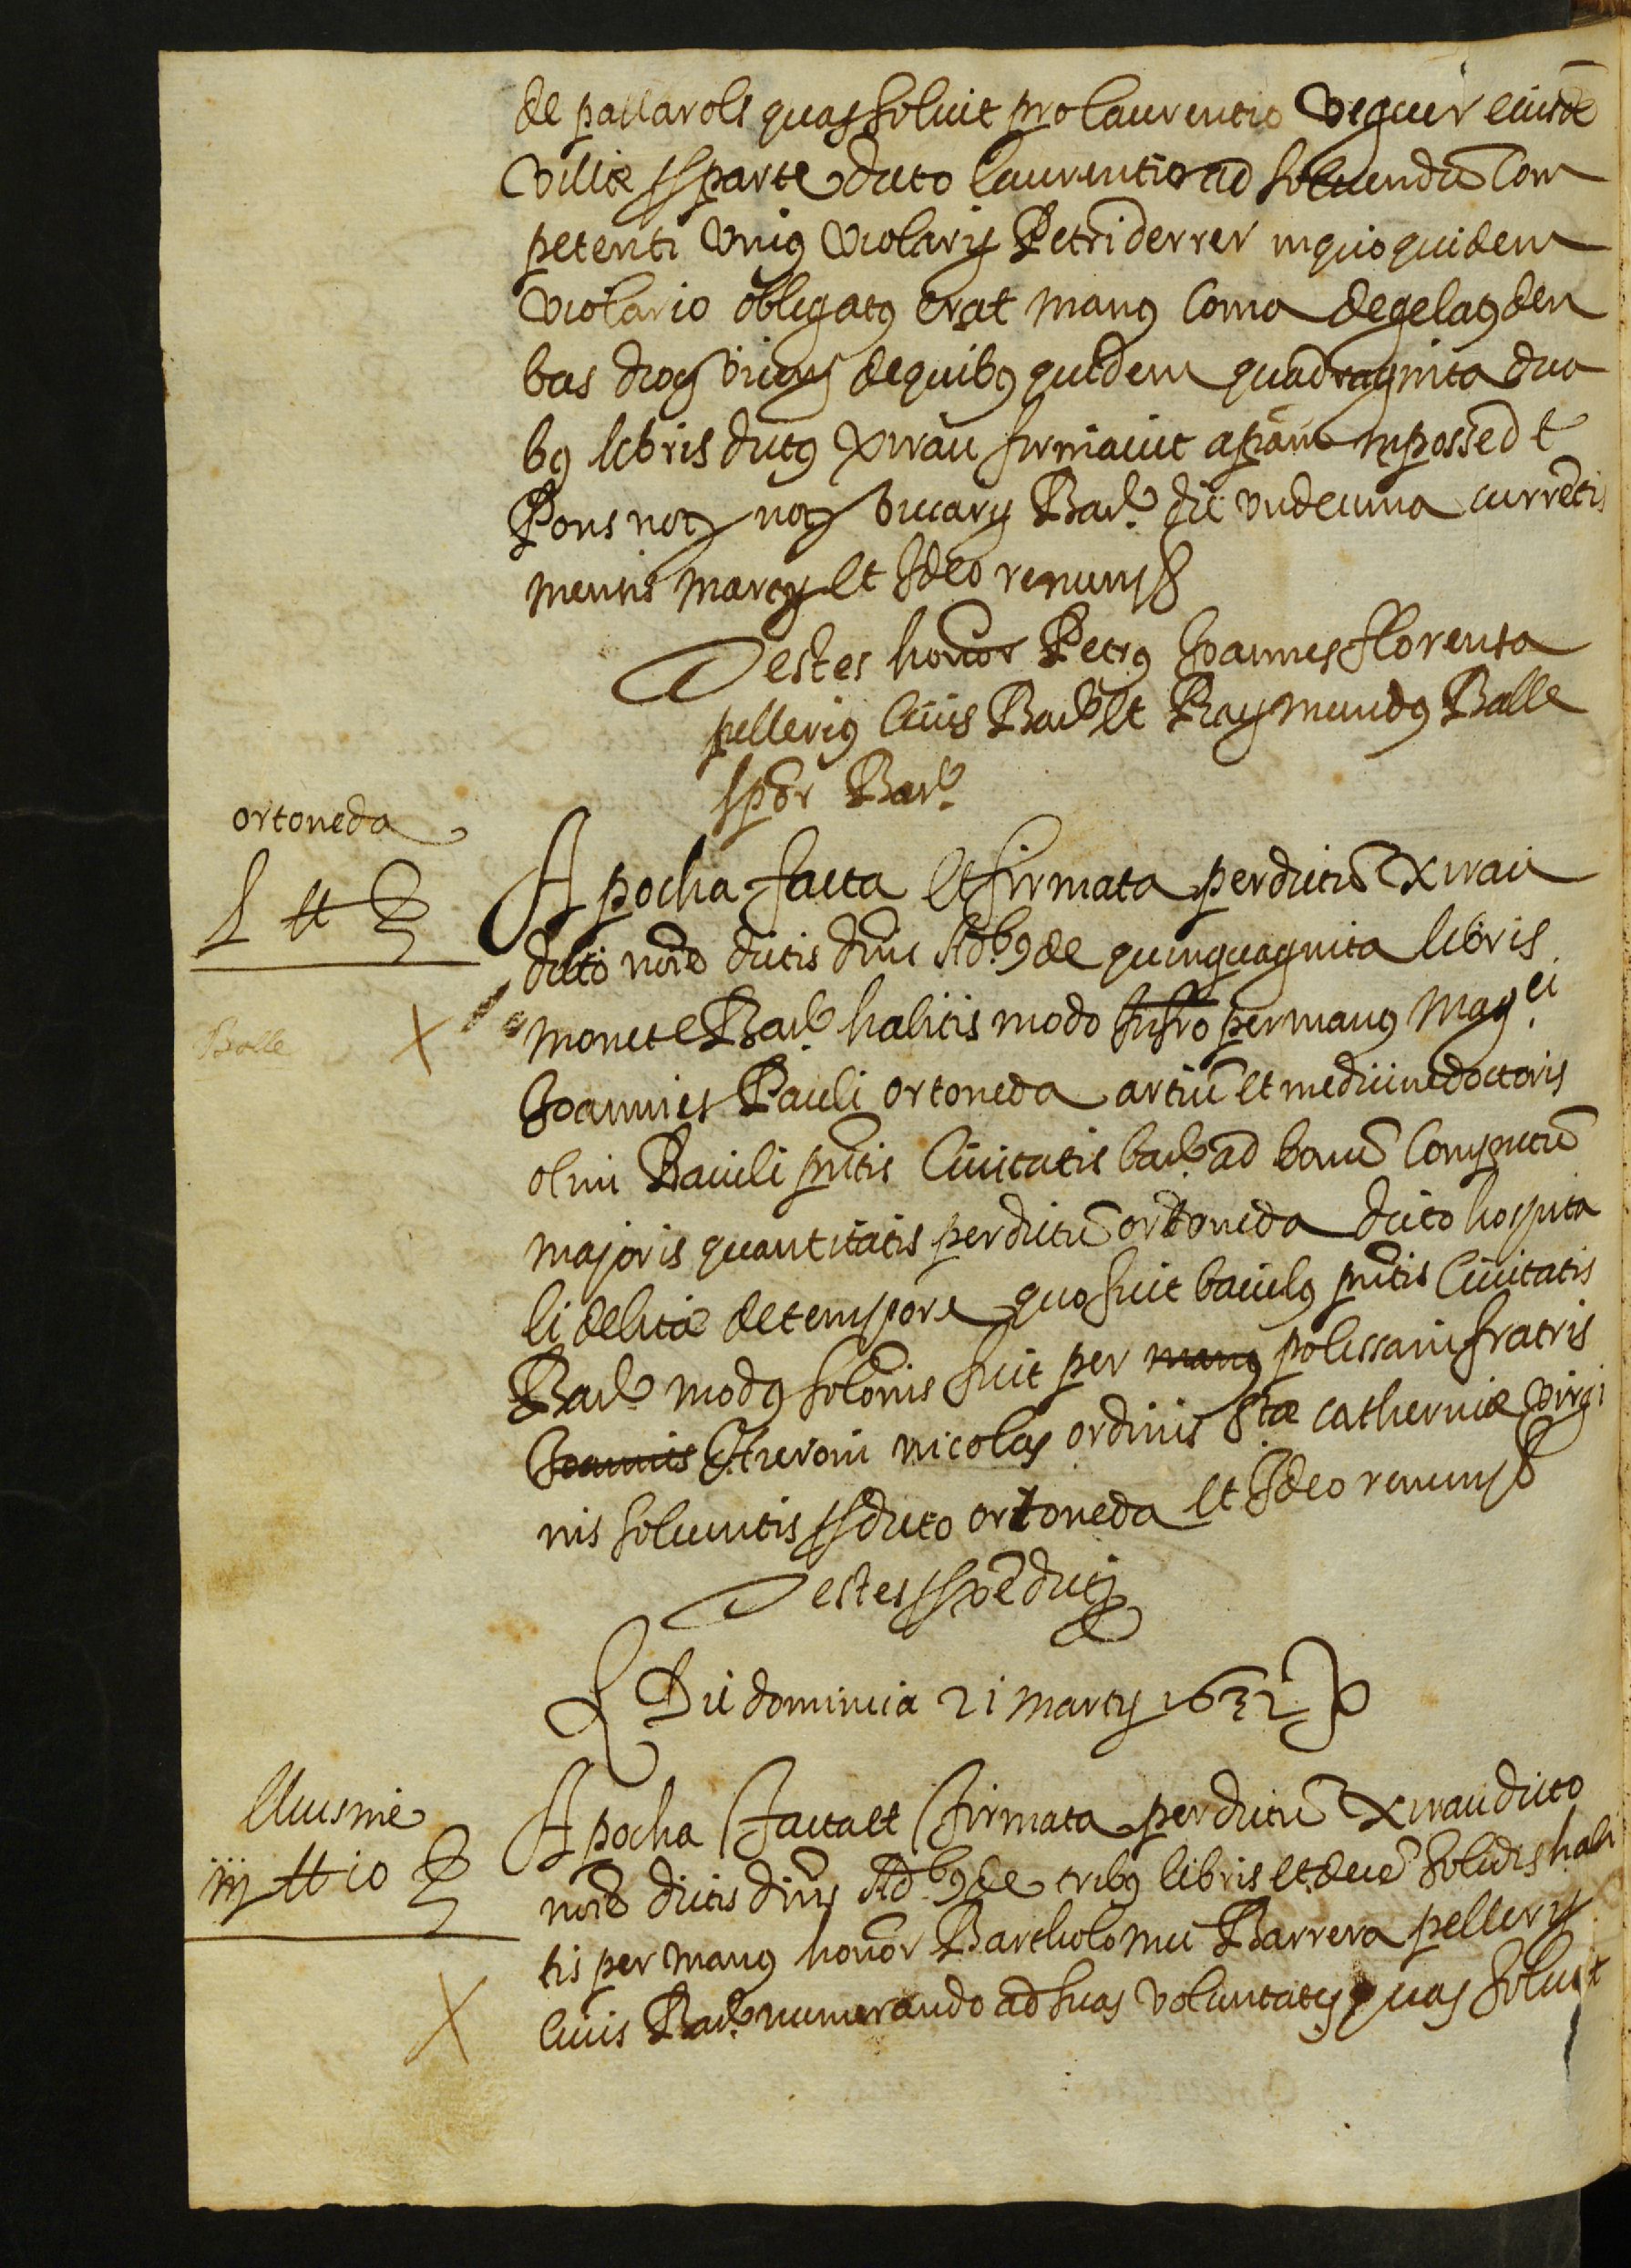 de pallarols quas soluit pro laurentio Veguer eiusde
Villæ pparte dicto laurentio ad soluendũ Com
petenti Vnius Violarij Petri derrer in quo quidem
Violario obligatus erat manus Coma degelats den
bas dioc Vicens de quibus quidem quadraginta dua
bus libris dictus Xirau firmauit apãm in posse d t
Pons not Vicarij Barñe die vndecima currẽtis
mensis Martij Et Ideo renuns &
Testes honor Petrus Joannes florensa
pellerius Ciuis Barñe Et Raymundus Balle
sp̃or Barñe
ortoneda
L tt ß
Apocha facta Et firmata per dictũ Xirau
dicto noĩe dictis dm̃s Ad.bus de quinquaginta libris
monete Barñe habitis modo infr̃o per manus Magci
Balle X
Joannis Pauli ortoneda artiũ Et medicine doctoris
olim Baiuli pñtis Ciuitatis barñe ad bonũ Computũ
majoris quantitatis per dictũ ortoneda dicto hospita
li debitæ de tempore quo fuit baiulus pñtis Ciuitatis
Barñe modus solõnis fuit per manus polissam fratris
Joannis Hieroni nicolas ordinis Stæ catherinæ Virgi
nis soluentis pdicto ortoneda Et Ideo renuns &
Testes pxe dicti
Die dominica 21 Martij 1632
Llusme
iij tt 10 ß
Apocha facta et firmata per dictũ Xirau dicto
noĩe dictis dm̃s Ad.bus de tribus libris et decẽ solidis habi
tis per manus honor Bartholomei Barrera pellerij
X
Ciuis Barñe numerando ad suas Voluntates quas soluit